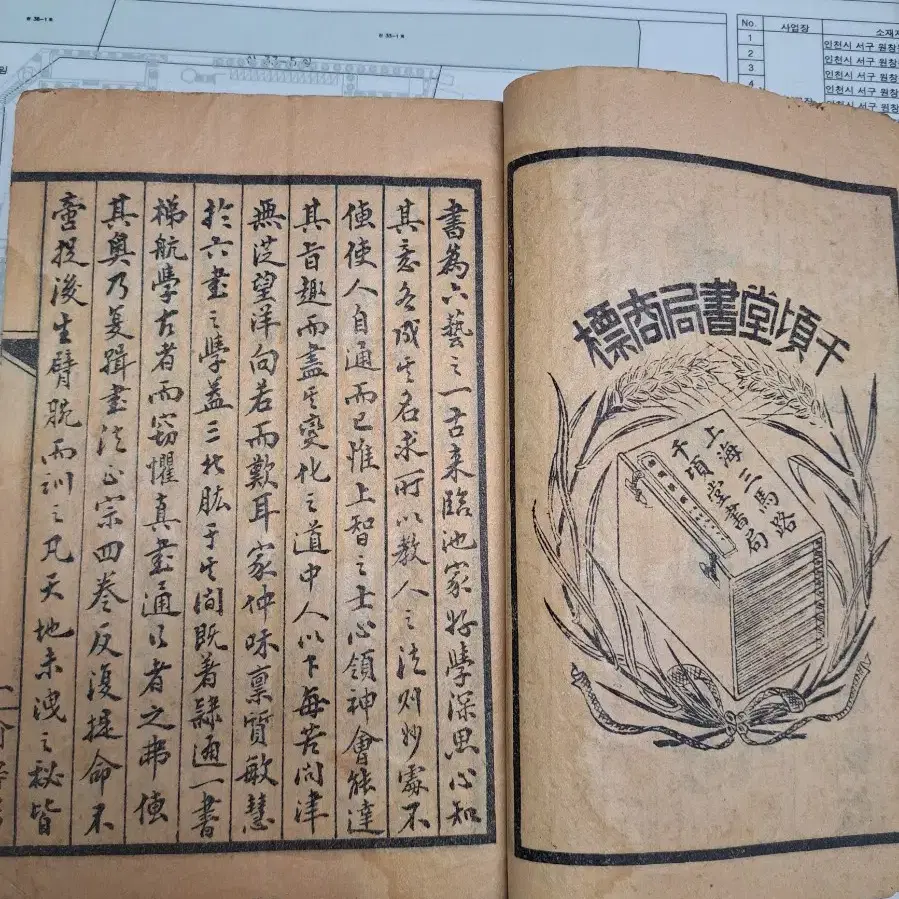 千頃堂書局商標
上海三馬路
千頃堂書局
書為六藝之一古来臨池家好學深思心知
其意各成其名求所以教人之法則妙處不
傳使人自通而已惟上智之士心領神會能達
其旨趣而盡其變化之道中人以下每苦问津
無從望洋向若而歎耳家仲味稟質敏慧
於六書之學蓋三折肱于其间既着隸通一書
梯航學古者而竊懼真書通行者之弗傳
其奧乃复輯書法正宗四卷反復提命不
啻捉後生臂腕而訓之凡天地未洩之秘皆
No. 사업장
1 인천시 서구
2 인천시 서구 원창
3 인천시 서구 원창
4 인천시 서구 원창
인천시 서구 원창